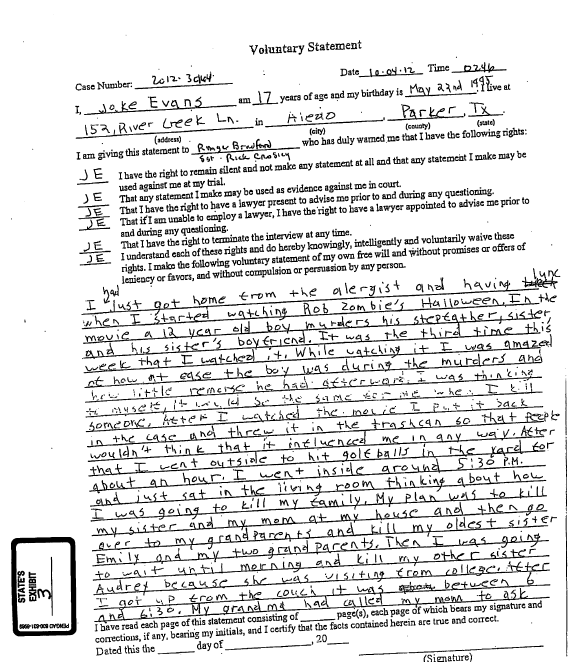 Voluntary Statement
Case Number: 2012-30
Date 10-04-12 Time 0246
I, Jake Evans am 17 years of age and my birthday is May 22nd 1995, I live at
152, River Creek Ln. in Aledo Parker, Tx
(address) (city) (county) (state)
I am giving this statement to Ranger Bradford who has duly warned me that I have the following rights:
Sgt. Rick
JE I have the right to remain silent and not make any statement at all and that any statement I make may be
used against me at my trial.
JE That any statement I make may be used as evidence against me in court.
JE That I have the right to have a lawyer present to advise me prior to and during any questioning.
JE That if I am unable to employ a lawyer, I have the right to have a lawyer appointed to advise me prior to
and during any questioning.
JE That I have the right to terminate the interview at any time.
JE I understand each of these rights and do hereby knowingly, intelligently and voluntarily waive these
rights. I make the following voluntary statement of my own free will and without promises or offers of
leniency or favors, and without compulsion or persuasion by any person.
I had just got home from the alergist and having lunc
when I started watching Rob Zombie's Halloween. In the
movie a 12 year old boy murders his stepfather, sister,
and his sister's boyfriend. It was the third time this
week that I watched it. While watching it I was amazed
at how at ease the boy was during the murders and
how little remorse he had afterward. I was thinking
to myself, it would be the same for me when I kill
someone. After I watched the movie I put it back
in the case and threw it in the trashcan so that people
wouldn't think that it influenced me in any way. After
that I went outside to hit golf balls in the yard for
about an hour. I went inside around 5:30 P.M.
and just sat in the living room thinking about how
I was going to kill my family. My plan was to kill
my sister and my mom at my house and then go
over to my grandparents and kill my oldest sister
Emily and my two grandparents. Then I was going
to wait until morning and kill my other sister
Audrey because she was visiting from college. After
I got up from the couch it was between 6
and 6:30. My grandma had called my mom to ask
I have read each page of this statement consisting of page(s), each page of which bears my signature and
corrections, if any, bearing my initials, and I certify that the facts contained herein are true and correct.
Dated this the day of , 20
(Signature)
STATE'S
EXHIBIT
3